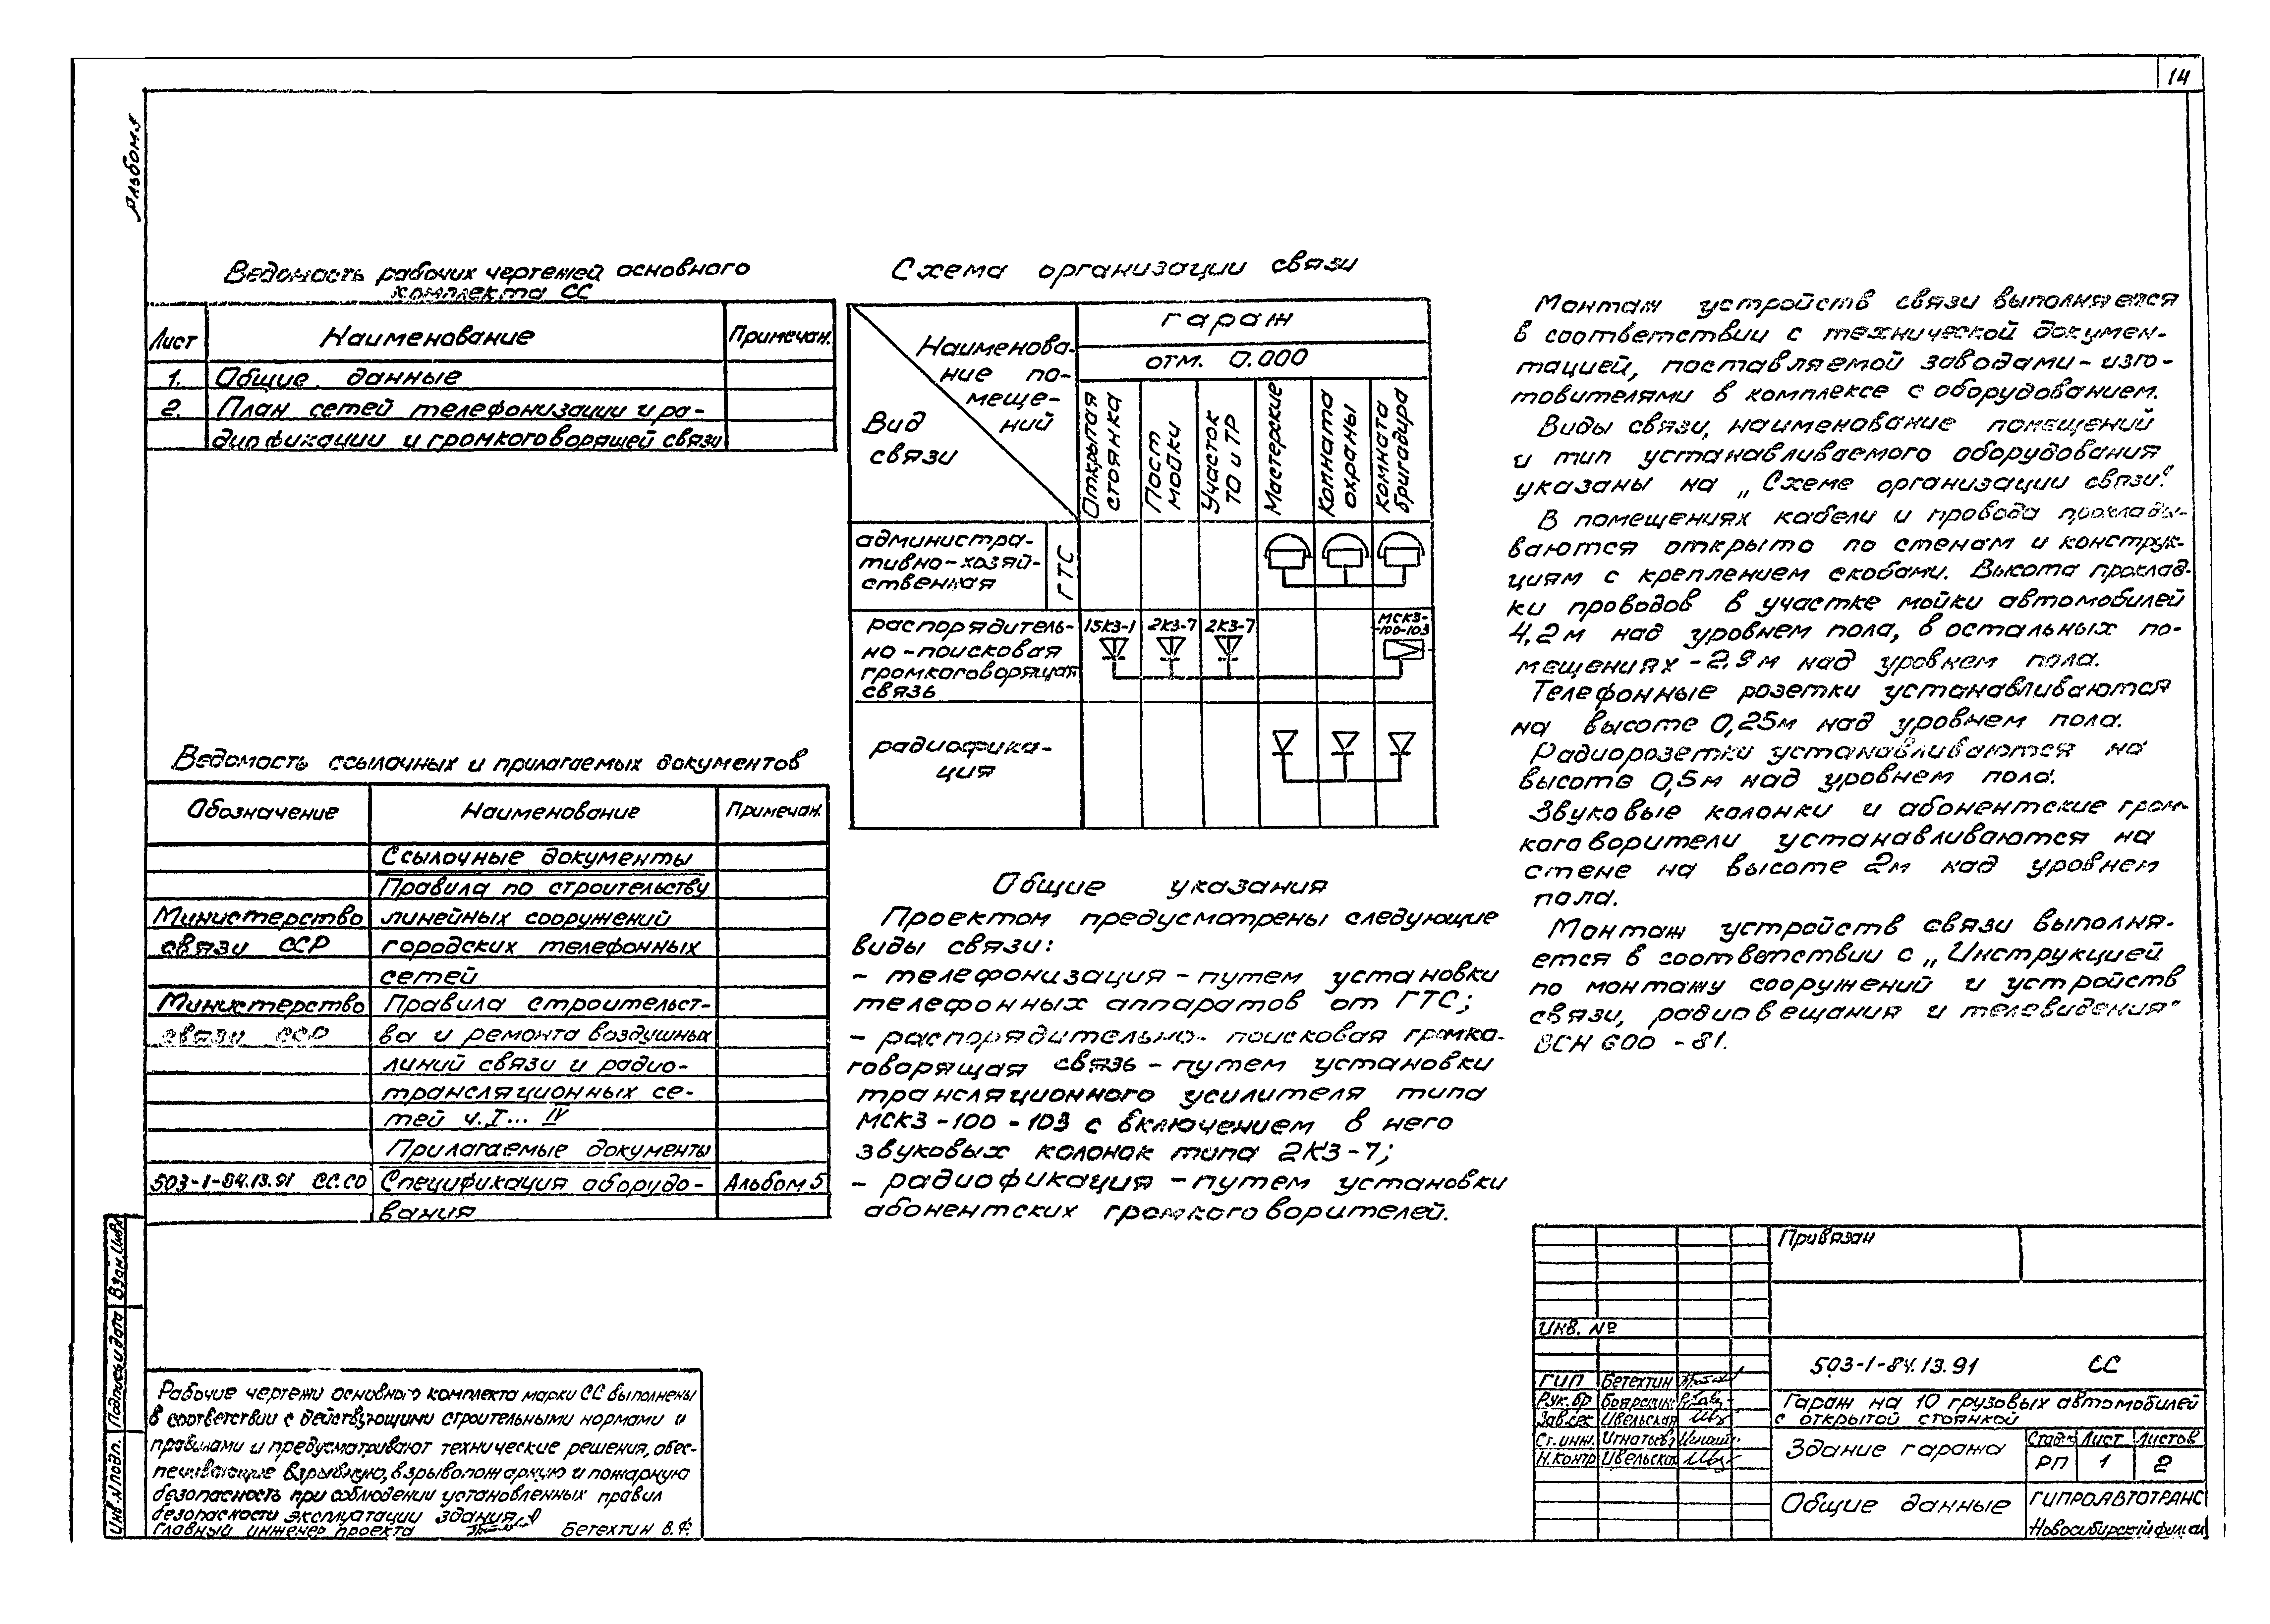 14
Альбом 5
Ведомость рабочих чертежей основного
комплекта СС
Лист Наименование Примечан.
1. Общие данные
2. План сетей телефонизации и ра-
диофикации и громкоговорящей связи
Ведомость ссылочных и прилагаемых документов
Обозначение Наименование Примечан.
Ссылочные документы
Правила по строительству
Министерство линейных сооружений
связи СССР городских телефонных
сетей
Министерство Правила строительст-
связи СССР ва и ремонта воздушных
линий связи и радио-
трансляционных се-
тей ч. I... IV
Прилагаемые документы
503-1-84.13.91 СС.СО Спецификация оборудо- Альбом 5
вания
Схема организации связи
Наименова-
ние по-
меще-
ний
Вид
связи
гараж
отм. 0.000
Открытая
стоянка
Пост
мойки
Участок
ТО и ТР
Мастерские
Комната
охраны
комната
бригадира
администра-
тивно-хозяй-
ственная
ГТС
распорядитель-
но-поисковая
громкоговорящая
связь
15КЗ-1 2КЗ-7 2КЗ-7 МСКЗ-
-100-103
радиофика-
ция
Общие указания
Проектом предусмотрены следующие
виды связи:
- телефонизация - путем установки
телефонных аппаратов от ГТС;
- распорядительно-поисковая громко-
говорящая связь - путем установки
трансляционного усилителя типа
МСКЗ-100-103 с включением в него
звуковых колонок типа 2КЗ-7;
- радиофикация - путем установки
абонентских громкоговорителей.
Монтаж устройств связи выполняется
в соответствии с технической докумен-
тацией, поставляемой заводами-изго-
товителями в комплексе с оборудованием.
Виды связи, наименование помещений
и тип устанавливаемого оборудования
указаны на „Схеме организации связи".
В помещениях кабели и проводаproклады-
ваются открыто по стенам и конструк-
циям с креплением скобами. Высота проклад-
ки проводов в участке мойки автомобилей
4,2м над уровнем пола, в остальных по-
мещениях - 2,9м над уровнем пола.
Телефонные розетки устанавливаются
на высоте 0,25м над уровнем пола.
Радиорозетки устанавливаются на
высоте 0,5м над уровнем пола.
Звуковые колонки и абонентские гром-
коговорители устанавливаются на
стене на высоте 2м над уровнем
пола.
Монтаж устройств связи выполня-
ется в соответствии с „Инструкцией
по монтажу сооружений и устройств
связи, радиовещания и телевидения"
ВСН 600 - 81.
Инв. № подл. Подпись и дата Взам. инв.
Рабочие чертежи основного комплекта марки СС выполнены
в соответствии с действующими строительными нормами и
правилами и предусматривают технические решения, обес-
печивающие взрывную, взрывопожарную и пожарную
безопасность при соблюдении установленных правил
безопасности эксплуатации здания
Главный инженер проекта Бетехтин В.Ф.
Привязан
Инв. №
503-1-84.13.91 СС
ГИП Бетехтин
Рук. бр Боярский
Зав. сек Цвельская
Ст. инж. Игнатьев
Н. контр Цвельская
Гараж на 10 грузовых автомобилей
с открытой стоянкой
Здание гаража
Стадия Лист Листов
РП 1 2
Общие данные
ГИПРОАВТОТРАНС
Новосибирский филиал